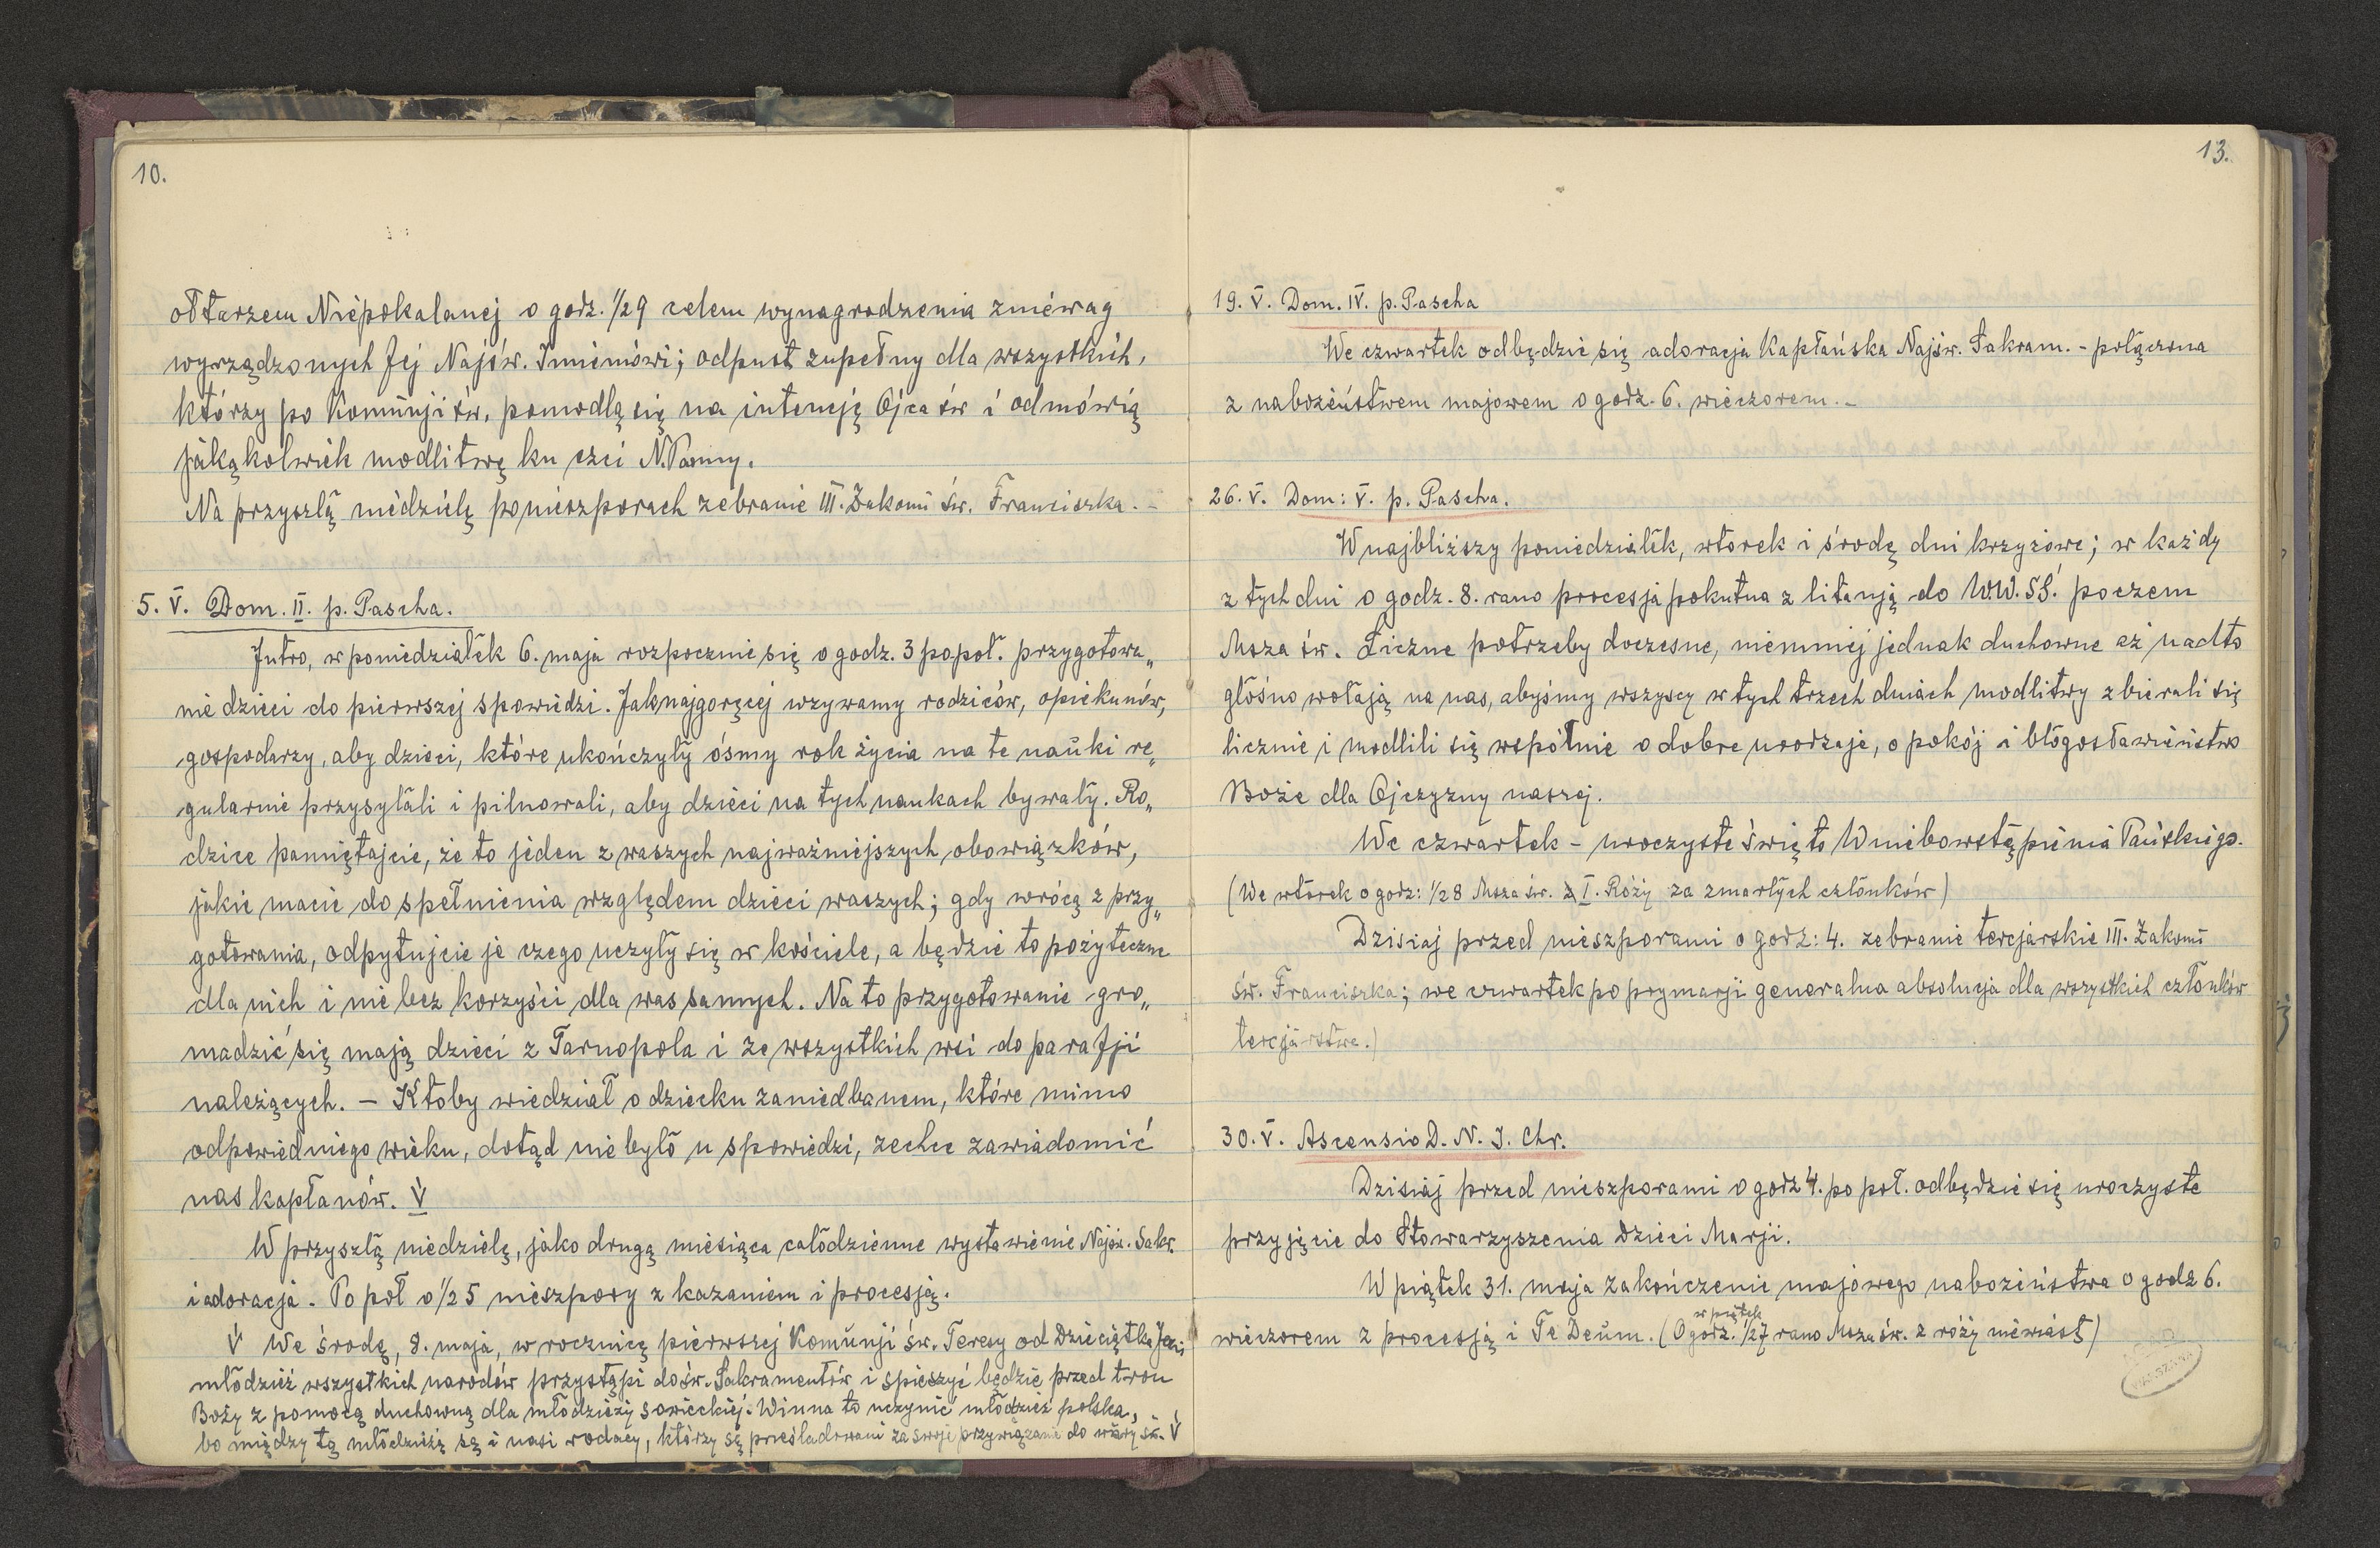 10.
ołtarzem Niepokalanej o godz. 1/2 9 celem wynagrodzenia zniewag
wyrządzonych Jej Najśw. Imieniowi; odpust zupełny dla wszystkich,
którzy po Komunji św. pomodlą się na intencję Ojca św i odmówią
jakąkolwiek modlitwę ku czci N. Panny.
Na przyszłą niedzielę po nieszporach zebranie III. Zakonu św. Franciszka. -
5. V. Dom. II. p. Pascha.
Jutro, w poniedziałek 6. maja rozpocznie się o godz. 3 popoł. przygotowa„
nie dzieci do pierwszej spowiedzi. Jaknajgoręcej wzywamy rodziców, opiekunów,
gospodarzy, aby dzieci, które ukończyły ósmy rok życia na te nauki re„
gularnie przysyłali i pilnowali, aby dzieci na tych naukach bywały. Ro„
dzice pamiętajcie, że to jeden z waszych najważniejszych obowiązków,
jakie macie do spełnienia względem dzieci waszych; gdy wrócą z przy„
gotowania, odpytujcie je czego uczyły się w kościele, a będzie to pożyteczne
dla nich i nie bez korzyści dla was samych. Na to przygotowanie gro„
madzić się mają dzieci z Tarnopola i ze wszystkich wsi do parafji
należących. - Ktoby wiedział o dziecku zaniedbanem, które mimo
odpowiedniego wieku, dotąd nie było u spowiedzi, zechce zawiadomić
nas kapłanów. V
W przyszłą niedzielę, jako drugą miesiąca całodzienne wystawienie Najśw. Sakr.
i adoracja. Po poł o 1/2 5 nieszpory z kazaniem i procesją.
V We środę, 8. maja, w rocznicę pierwszej Komunji św. Teresy od Dzieciątka Jez.;
młodzież wszystkich narodów przystąpi do św. Sakramentów i spieszyć będzie przed tron
Boży z pomocą duchowną dla młodzieży sowieckiej. Winna to uczynić młodzież polska,
bo między tą młodzieżą są i nasi rodacy, którzy są prześladowani za swoje przywiązanie do wiary św. V
13.
19. V. Dom. IV. p. Pascha
We czwartek odbędzie się adoracja Kapłańska Najśw. Sakram. - połączona
z nabożeństwem majowem o godz. 6. wieczorem. -
26. V. Dom: V. p. Pascha.
W najbliższy poniedziałek, wtorek i środę dni krzyżowe; w każdy
z tych dni o godz. 8. rano procesja pokutna z litanją do W.W. ŚŚ. poczem
Msza św. Liczne potrzeby doczesne, niemniej jednak duchowne aż nadto
głośno wołają na nas, abyśmy wszyscy w tych trzech dniach modlitwy zbierali się
licznie i modlili się wspólnie o dobre urodzaje, o pokój i błogosławieństwo
Boże dla Ojczyzny naszej.
We czwartek - uroczyste święto Wniebowstąpienia Pańskiego.
(We wtorek o godz: 1/2 8 Msza św. z I. Róży za zmarłych członków)
Dzisiaj przed nieszporami o godz: 4. zebranie tercjarskie III. Zakonu
św. Franciszka; we czwartek po prymarji generalna absolucja dla wszystkich członków
tercjarstwa.)
30. V. Ascensio D. N. J. Chr.
Dzisiaj przed nieszporami o godz 4. po poł. odbędzie się uroczyste
przyjęcie do Stowarzyszenia Dzieci Marji.
W piątek 31. maja zakończenie majowego nabożeństwa o godz 6.
w piątek
wieczorem z procesją i Te Deum. (O godz. 1/2 7 rano Msza św. z róży niewiast)
WARSZAWA